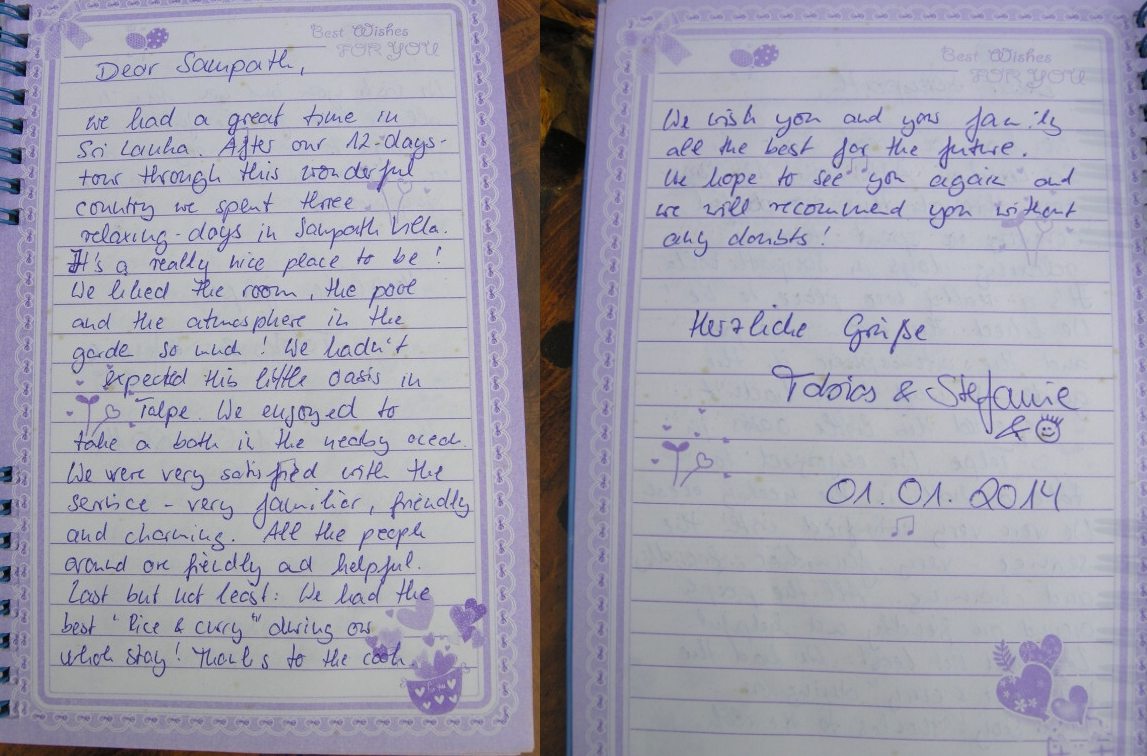 Best Wishes
FOR YOU
Dear Sampath,
we had a great time in
Sri Lanka. After our 12-days-
tour through this wonderful
country we spent three
relaxing-days in Sampath Villa.
It's a really nice place to be!
We liked the room, the pool
and the atmosphere in the
garde so much! We hadn't
expected this little oasis in
Talpe. We enjoyed to
take a bath in the nearby ocean.
We were very satisfied with the
service - very familier, friendly
and charming. All the people
around are friendly and helpful.
Last but not least: We had the
best "Rice & curry" during our
whole stay! Thanks to the cook.
For You
Best Wishes
FOR YOU
We wish you and your family
all the best for the future.
We hope to see you again and
we will recommend you without
any doubts!
Herzliche Grüße
Tobias & Stefanie
&
01.01.2014